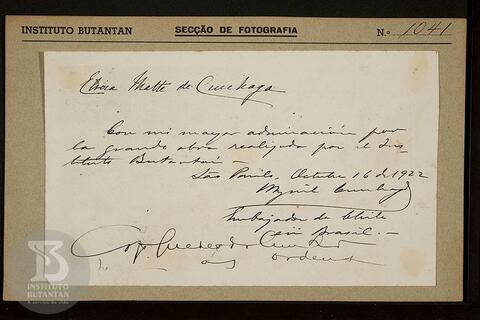 INSTITUTO BUTANTAN
SECÇÃO DE FOTOGRAFIA
N.º 1041
Elvira Matte de Cruchaga
Con mi mayor admiración por
la grande obra realizada por el Ins-
tituto Butantan —
Sao Paulo, Octubre 16 d. 1922
Miguel Cruchaga
Embajador de Chile
en Brasil. —
ordens
INSTITUTO
BUTANTAN
A serviço da vida